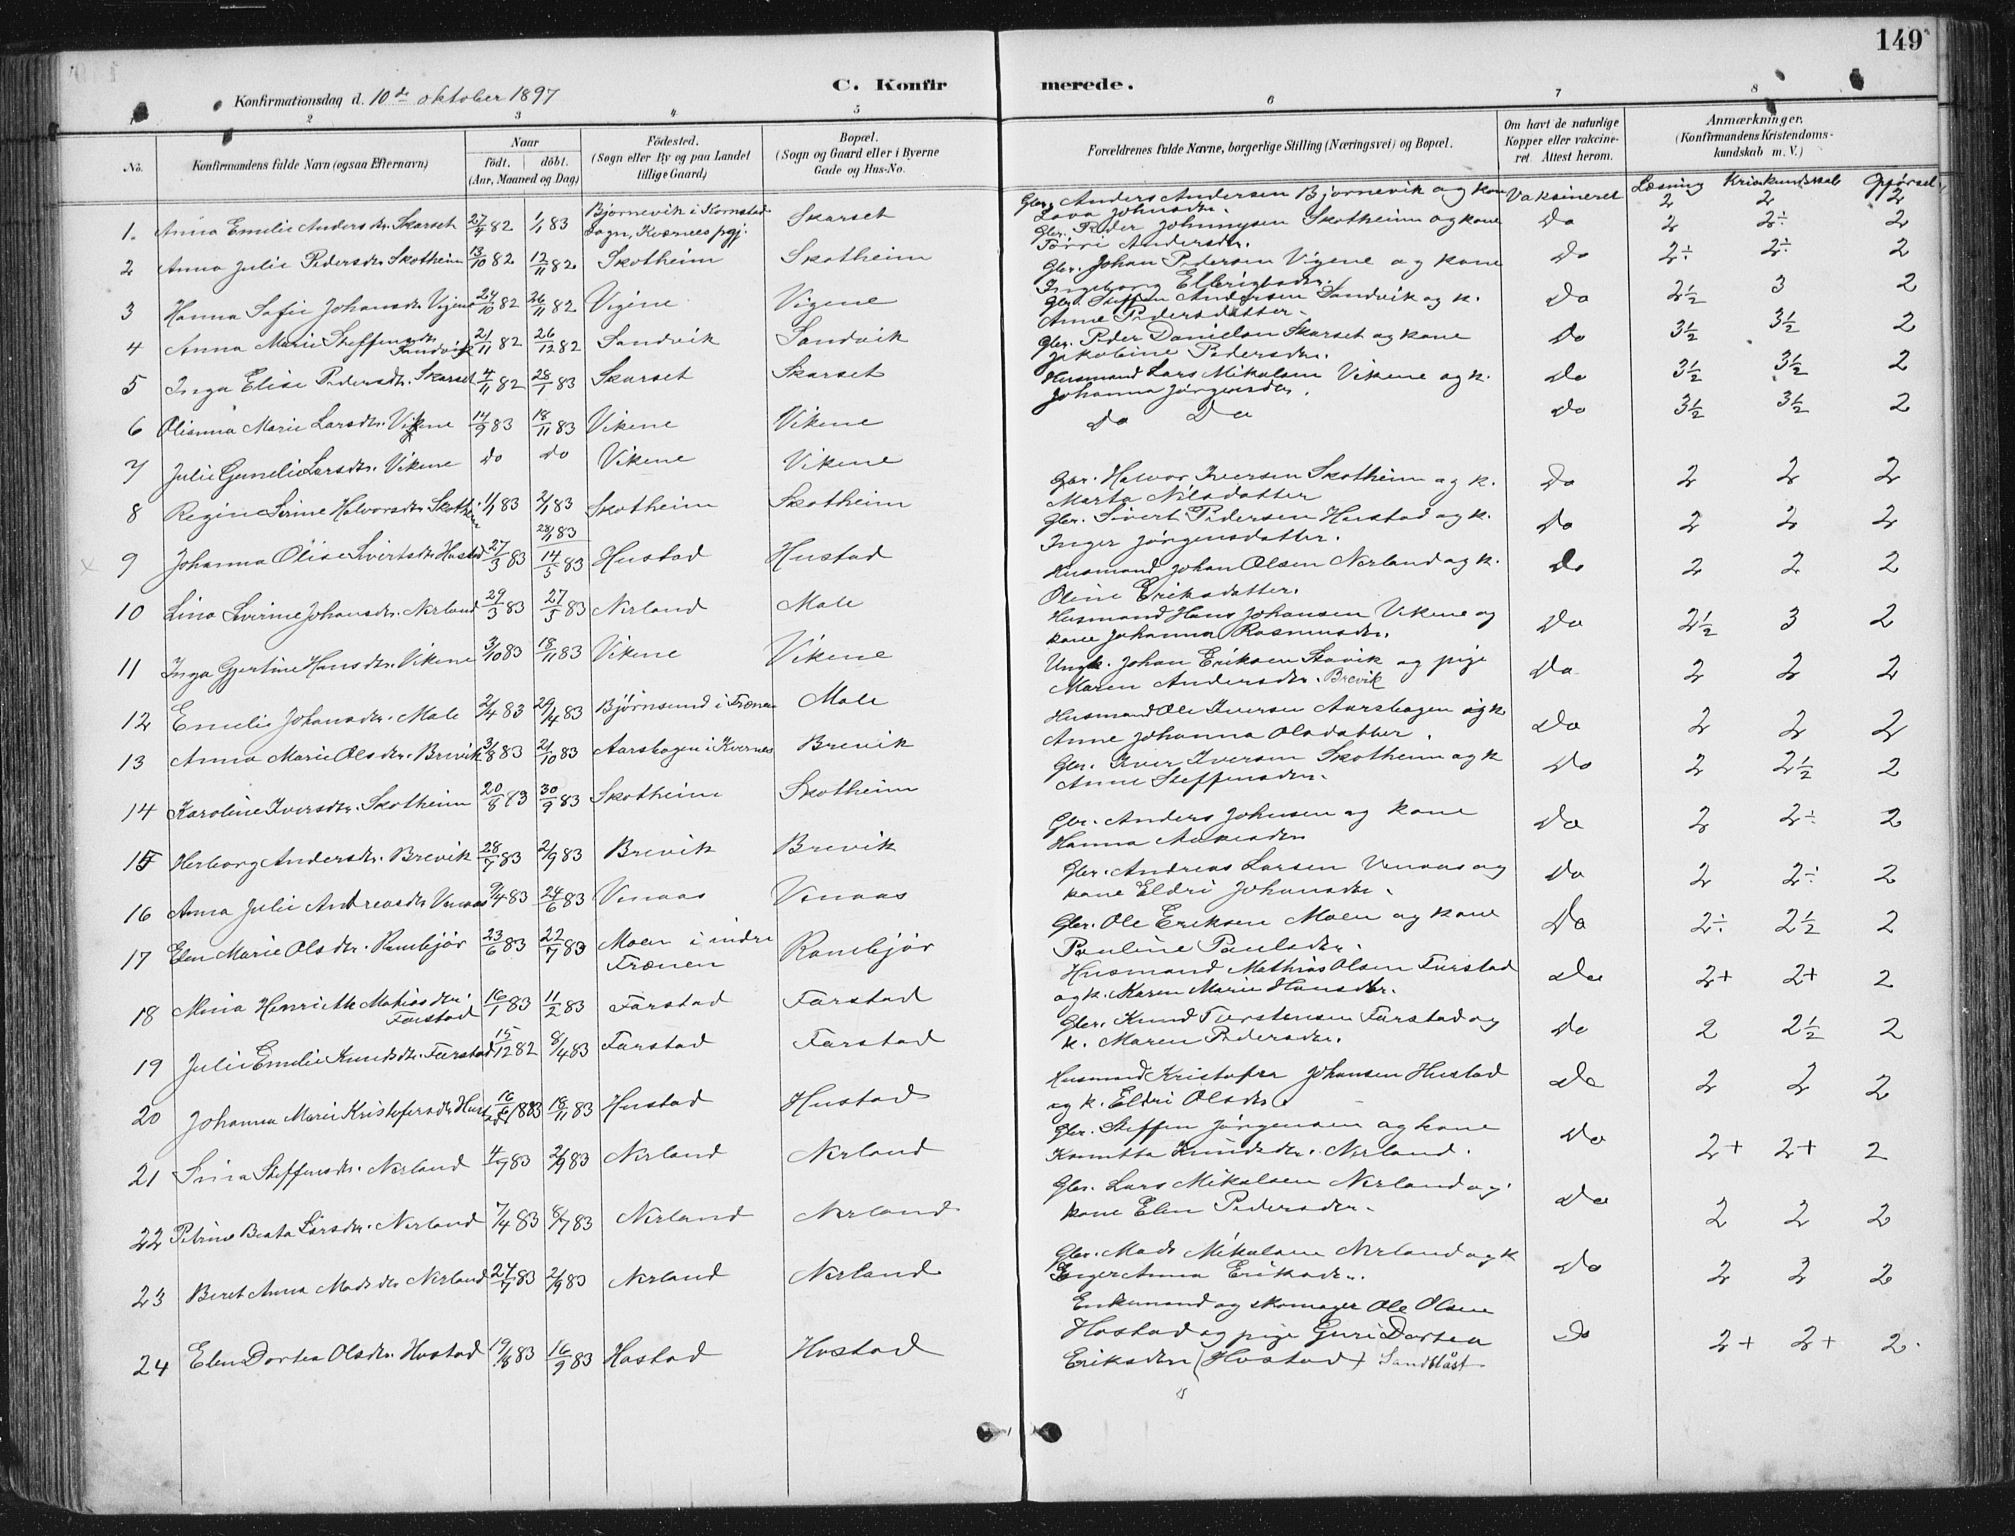 149
C. Konfirmerede.
Konfirmationsdag d. 10de oktober 1897
1 2 3 4 5 6 7 8
No. Konfirmandens fulde Navn (ogsaa Efternavn) Naar født. døbt. (Aar, Maaned og Dag) Fødested. (Sogn eller By og paa Landet tillige Gaard) Bopæl. (Sogn og Gaard eller i Byerne Gade og Hus-No. Forældrenes fulde Navne, borgerlige Stilling (Næringsvei) og Bopæl. Om havt de naturlige Kopper eller vakcineret Attest herom. Anmærkninger. (Konfirmandens Kristendomskundskab m. V.)
Læsning Opførsel
1. Anna Emelie Andersdtr. Skarset 27/4 82 1/1 83 Bjørnevik i Kornstad Sogn, Kvernes pgj. Skarset Gbr. Anders Andersen Bjørnevik og kone Johnsdtr. Vaksineret 2 2 2
2 Anna Julie Pedersdtr. Skotheim 13/10 82 12/11 82 Skotheim Skotheim Gbr. Peder Johnnysen Skotheim og kone Andersdtr. Do 2 2÷ 2
3 Hanna Sofie Johansdtr. Vigene 24/10 82 26/11 82 Vigene Vigene Gbr. Johan Pedersen Vigene og kone Ingeborg Do 2÷ 2÷ 2
4 Anna Marie Steffensdtr. Sandvik 21/11 82 26/12 82 Sandvik Sandvik Gbr. Steffen Andersen Sandvik og k. Anne Pedersdatter. Do 2½ 3 2
5 Inga Elise Pedersdtr. Skarset 4/11 82 28/1 83 Skarset Skarset Gbr. Peder Danielsen Skarset og kone Jakobine Pedersdtr. Do 3½ 3½ 2
6 Olianna Marie Larsdtr. Vikene 14/9 83 18/11 83 Vikene Vikene Husmand Lars Mikalsen Vikene og k. Johanna Jørgensdtr. Do 3½ 3½ 2
7 Julie Larsdtr. Vikene do do Vikene Vikene Do Do Do 3½ 3½ 2
8 Regine Serine Halvorsdtr. Skotheim 1/1 83 2/1 83 Skotheim Skotheim Gbr. Halvor Iversen Skotheim og k. Marta Nilsdatter Do 2 2 2
9 Johanna Olise Sivertsdtr. Hustad 27/3 83 28/4 83 14/5 83 Hustad Hustad Gbr. Sivert Pedersen Hustad og k. Inger Jørgensdatter. Do 2 2 2
10 Lina Severine Johansdtr. Nerland 29/3 83 27/5 83 Nerland Male Husmand Johan Olsen Nerland og k. Oline Eriksdatter. Do 2 2 2
11 Inga Gjertine Hansdtr. Vikene 3/10 83 18/11 83 Vikene Vikene Husmand Hans Johansen Vikene og kone Johanna Rasmusdtr. Do 2½ 3 2
12 Emelie Johansdtr. Male 2/4 83 29/4 83 Bjørnsund i Frænen Male Ungk. Johan Eriksen Stavik og pige Maren Andersdtr. Brevik Do 2 2 2
13 Anna Marie Olsdtr. Brevik 3/8 83 21/10 83 Aarsbogen i Kvernes Brevik Husmand Ole Iversen Aarsbogen og k. Anne Johanna Olsdatter. Do 2 2 2
14 Karoline Iversdtr. Skotheim 20/8 83 30/9 83 Skotheim Skotheim Gbr. Iver Iversen Skotheim og k Anne Steffensdtr. Do 2 2½ 2
15 Herborg Andersdtr. Brevik 28/7 83 2/9 83 Brevik Brevik Gbr. Anders Johnsen og kone Hanna Do 2 2÷ 2
16 Anna Julie Andreasdtr. Venaas 9/4 83 24/6 83 Venaas Venaas Gbr. Andreas Larsen Venaas og kone Eldri Johansdtr. Do 2 2÷ 2
17 Elen Marie Olsdtr. Rambjør 23/6 83 22/7 83 Moen i indre Frænen Rambjør Gbr. Ole Eriksen Moen og kone Pauline Paulsdtr. Do 2÷ 2½ 2
18 Mina Henrikke Matiasdtr. Farstad 16/1 83 11/2 83 Farstad Farstad Husmand Mathias Olsen Farstad og k. Karen Marie Hansdtr. Do 2+ 2+ 2
19 Julie Emelie Knudsdtr. Farstad 15/12 82 8/4 83 Farstad Farstad Gbr. Knud Torstensen Farstad og k. Maren Pedersdtr. Do 2 2½ 2
20 Johanna Marie Kristofersdtr. Hustad 16/6 1883 18/11 83 Hustad Hustad Husmand Kristofer Johansen Hustad og k. Eldri Olsdtr. Do 2 2 2
21 Sina Steffensdtr. Nerland 4/7 83 2/9 83 Nerland Nerland Gbr. Steffen Jørgensen og kone Knudsdtr. Nerland. Do 2+ 2+ 2
22 Petrine Beata Larsdtr. Nerland 7/4 83 8/7 83 Nerland Nerland Gbr. Lars Mikalsen Nerland og kone Elen Pedersdtr. Do 2 2 2
23 Beret Anna Madsdtr Nerland 27/7 83 2/9 83 Nerland Nerland Gbr. Mads Mikalsen Nerland og k Inger Anna Eriksdtr. Do 2 2 2
24 Elen Dortea Olsdtr. Hostad 19/8 83 16/9 83 Hostad Hostad Enkemand og skomager Ole Olsen Hostad og pige Guri Dortea Eriksdtr (Hostad) Sandblåst Do 2+ 2+ 2.